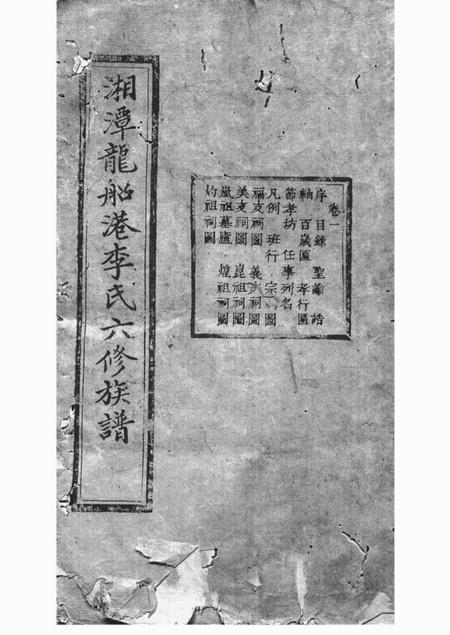 湘潭龍船港李氏六修族譜
卷一
序 目錄 聖諭 誥
軸 百歲匾 孝行匾
節孝坊 任事列名
凡例 班行 宗 圖
福支祠圖 義 祠圖
美支祠圖 崑祖祠圖
嵐祖墓廬 煌祖祠圖
灼祖祠圖